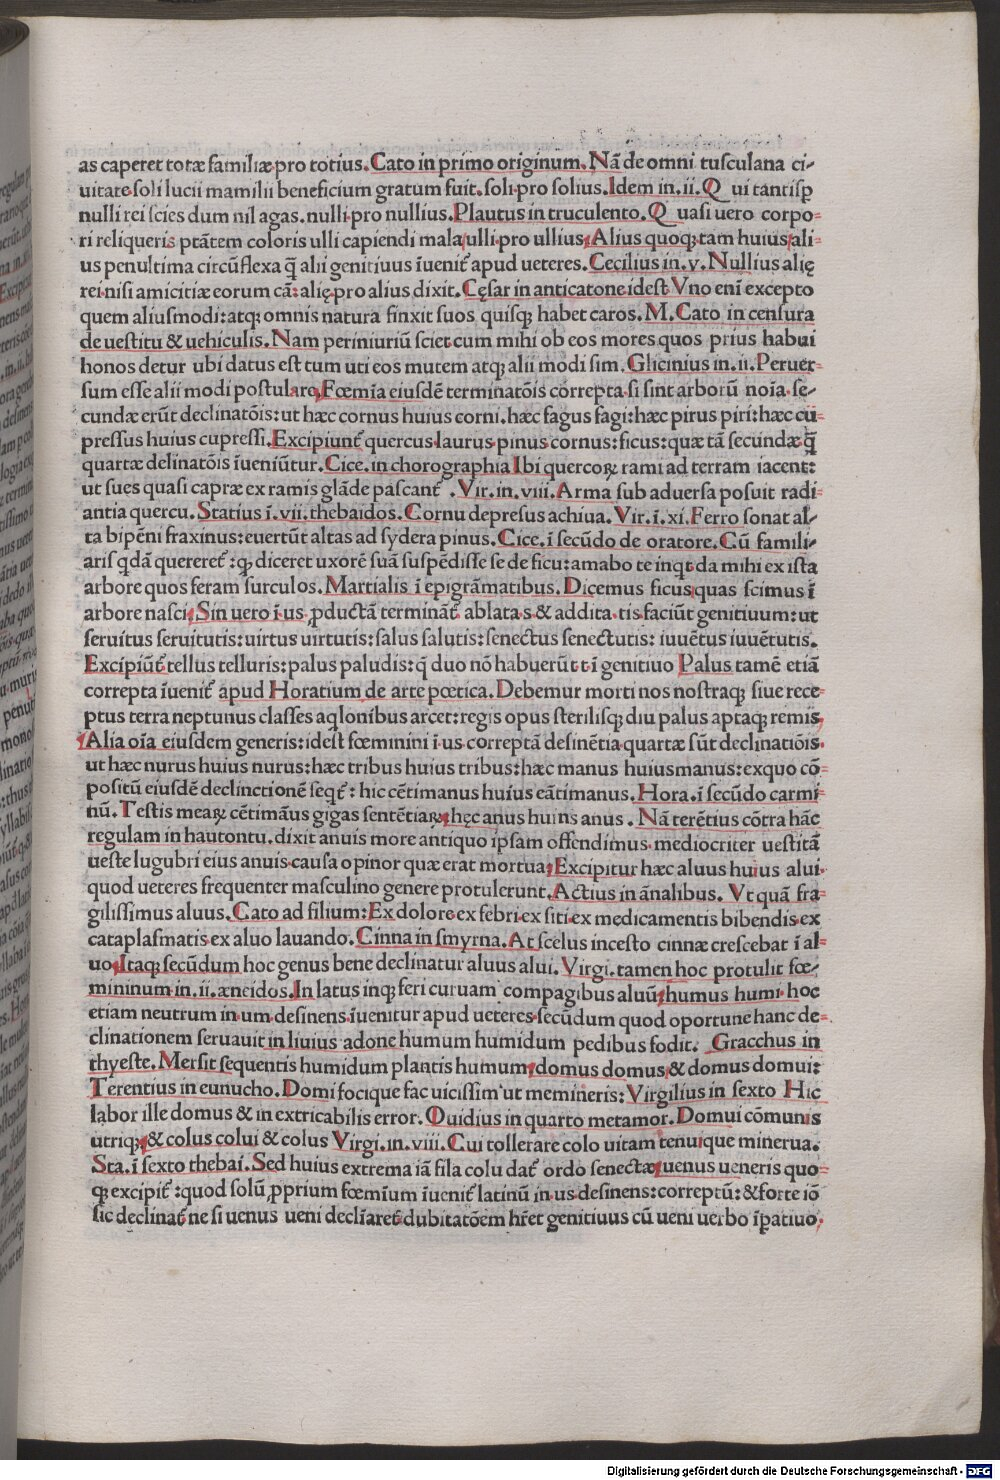 as caperet totæ familiæ·pro totius. Cato in primo originum. Nã de omni tusculana ci-
uitate·soli lucii mamilii beneficium gratum fuit. soli·pro solius. Idem in .ii. Q ui tantisꝑ
nulli rei scies dum nil agas. nulli·pro nullius. Plautus in truculento. Q uasi uero corpo-
ri reliqueris ptãtem coloris ulli capiendi mala. ulli·pro ullius. Alius quoqꝫ tam huius ali-
us penultima circũflexa q̃ alii genitiuus ĩueniť apud ueteres. Cecilius in .v. Nullius alię
rei·nisi amicitiæ eorum cã: alię·pro alius dixit. Cęsar in anticatone idest Vno enĩ excepto
quem aliusmodi: atqꝫ omnis natura finxit suos quisqꝫ habet caros. M. Cato in censura
de uestitu & uehiculis. Nam periniuriũ sciet cum mihi ob eos mores quos prius habui
honos detur ubi datus est tum uti eos mutem atqꝫ alii modi sim. Glicinius in .ii. Peruer-
sum esse alii modi postularo. Fœmia eiusdẽ terminatõis correpta·si sint arborũ noĩa se-
cundæ erũt declinatõis: ut hæc cornus huius corni. hæc fagus fagi: hæc pirus piri: hæc cu-
pressus huius cupressi. Excipiunť quercus·laurus·pinus·cornus: ficus: quæ tã secundæ q̃
quartæ delinatõis ĩueniũtur. Cice. in chorographia Ibi quercoꝝ rami ad terram iacent:
ut sues quasi capræ ex ramis glãde pascanť . Vir. in .viii. Arma sub aduersa posuit radi-
antia quercu. Statius ĩ .vii. thebaidos. Cornu depresus achiua. Vir. ĩ .xi. Ferro sonat al-
ta bipẽni fraxinus: euertũt altas ad sydera pinus. Cice. ĩ secũdo de oratore. Cũ famili-
aris q̃dã quereret̃ : qꝫ diceret uxorẽ suã suspẽdisse se de ficu: amabo te inqt da mihi ex ista
arbore quos feram surculos. Martialis ĩ epigrãmatibus. Dicemus ficus quas scimus ĩ
arbore nasci. Sin uero ĩ·us ꝓductã terminãť ablata·s & addita·tis·faciũt genitiuum: ut
seruitus seruitutis: uirtus uirtutis: salus salutis: senectus senectutis: iuuẽtus iuuẽtutis.
Excipiũť tellus telluris: palus paludis: q̃ duo nõ habuerũt·t·ĩ genitiuo Palus tamẽ etiã
correpta ĩueniť apud Horatium de arte pœtica. Debemur morti nos nostraqꝫ siue rece-
ptus terra neptunus classes aqlonibus arcet: regis opus sterilisqꝫ diu palus aptaqꝫ remis,
Alia oĩa eiusdem generis: idest fœminini ĩ·us·correptã desinẽtia·quartæ sũt declinatiõis·
ut hæc nurus huius nurus: hæc tribus huius tribus: hæc manus huiusmanus: exquo cõ-
positũ eiusdẽ declinctionẽ seqť : hic cẽtimanus huius cẽtimanus. Hora. ĩ secũdo carmi-
nũ. Testis mearꝝ cẽtimãus gigas sentẽtiaꝝ, hęc anus huius anus . Nã terẽtius cõtra hãc
regulam in hautontu. dixit anuis more antiquo ipsam offendimus·mediocriter uestitã
ueste lugubri eius anuis causa opinor quæ erat mortua. Excipitur hæc aluus huius alui·
quod ueteres frequenter masculino genere protulerunt. Actius in ãnalibus. Vt quã fra-
gilissimus aluus. Cato ad filium: Ex dolore·ex febri·ex siti·ex medicamentis bibendis·ex
cataplasmatis·ex aluo lauando. Cinna in smyrna. At scelus incesto cinnæ crescebat ĩ al-
uo. Itaqꝫ secũdum hoc genus bene declinatur aluus alui. Virgi. tamen hoc protulit fœ-
mininum·in .ii. æneidos. In latus inqꝫ feri curuam compagibus aluũ. humus humi·hoc
etiam neutrum in·um·desinens·ĩuenitur apud ueteres·secũdum quod oportune hanc de-
clinationem seruauit in liuius adone humum humidum pedibus fodit. Gracchus in
thyeste. Mersit sequentis humidum plantis humum. domus domus & domus domui:
Terentius in eunucho. Domi focique fac uicissim ut memineris: Virgilius in sexto Hic
labor ille domus & in extricabilis error. Ouidius in quarto metamor. Domui cõmunis
utriqꝫ. & colus colui & colus Virgi. in .viii. Cui tollerare colo uitam tenuique minerua.
Sta. ĩ sexto thebai. Sed huius extrema iã fila colu dať ordo senectæ. uenus ueneris quo-
qꝫ excipiť : quod solũ ꝓprium fœmĩum ĩueniť latinũ in·us·desinens: correptũ: & forte iõ
sic declinať ne si uenus ueni declĩareť dubitatõem hr̃et genitiuus cũ ueni uerbo ĩpatiuo,
Digitalisierung gefördert durch die Deutsche Forschungsgemeinschaft - DFG